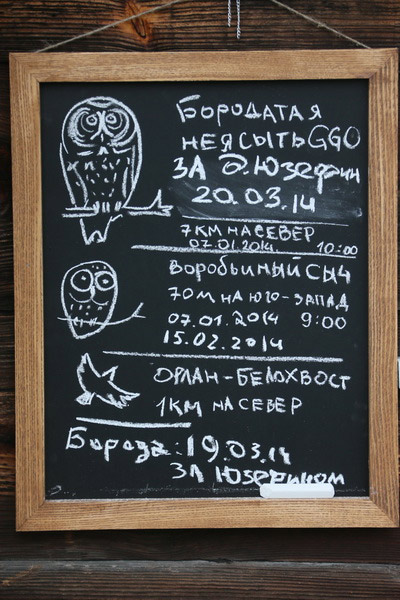 Бородатая
неясыть GGO
за д. Юзефин
20.03.14
7км на север
07.01.2014. 10:00
Воробьиный сыч
70м на юго-запад
07.01.2014 9:00
15.02.2014
Орлан-белохвост
1км на север
Борода: 19.03.14
за Юзефином